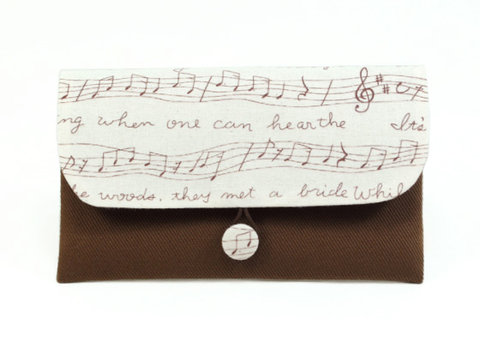 ng when one can hearthe It's
he woods. they met a bride Whil